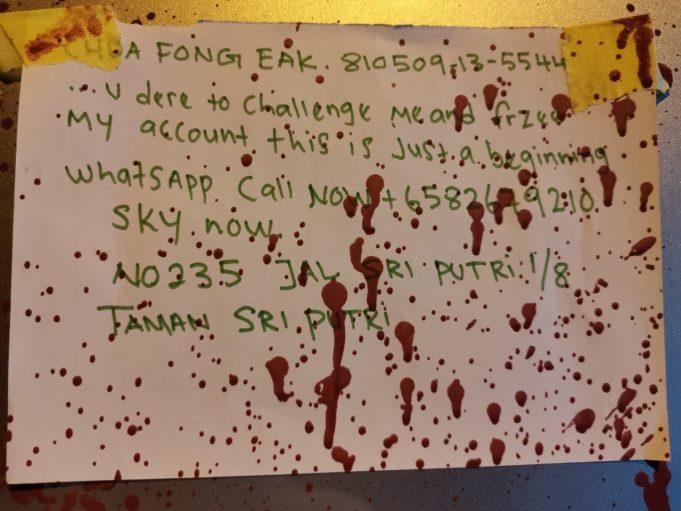 A FONG EAK. 810509-13-5544
...U dere to challenge me and frzee
My account this is just a beginning
whatsApp Call NOW +6582679210
SKY now.
NO235 JAL SRI PUTRI 1/8
TAMAN SRI PUTRI